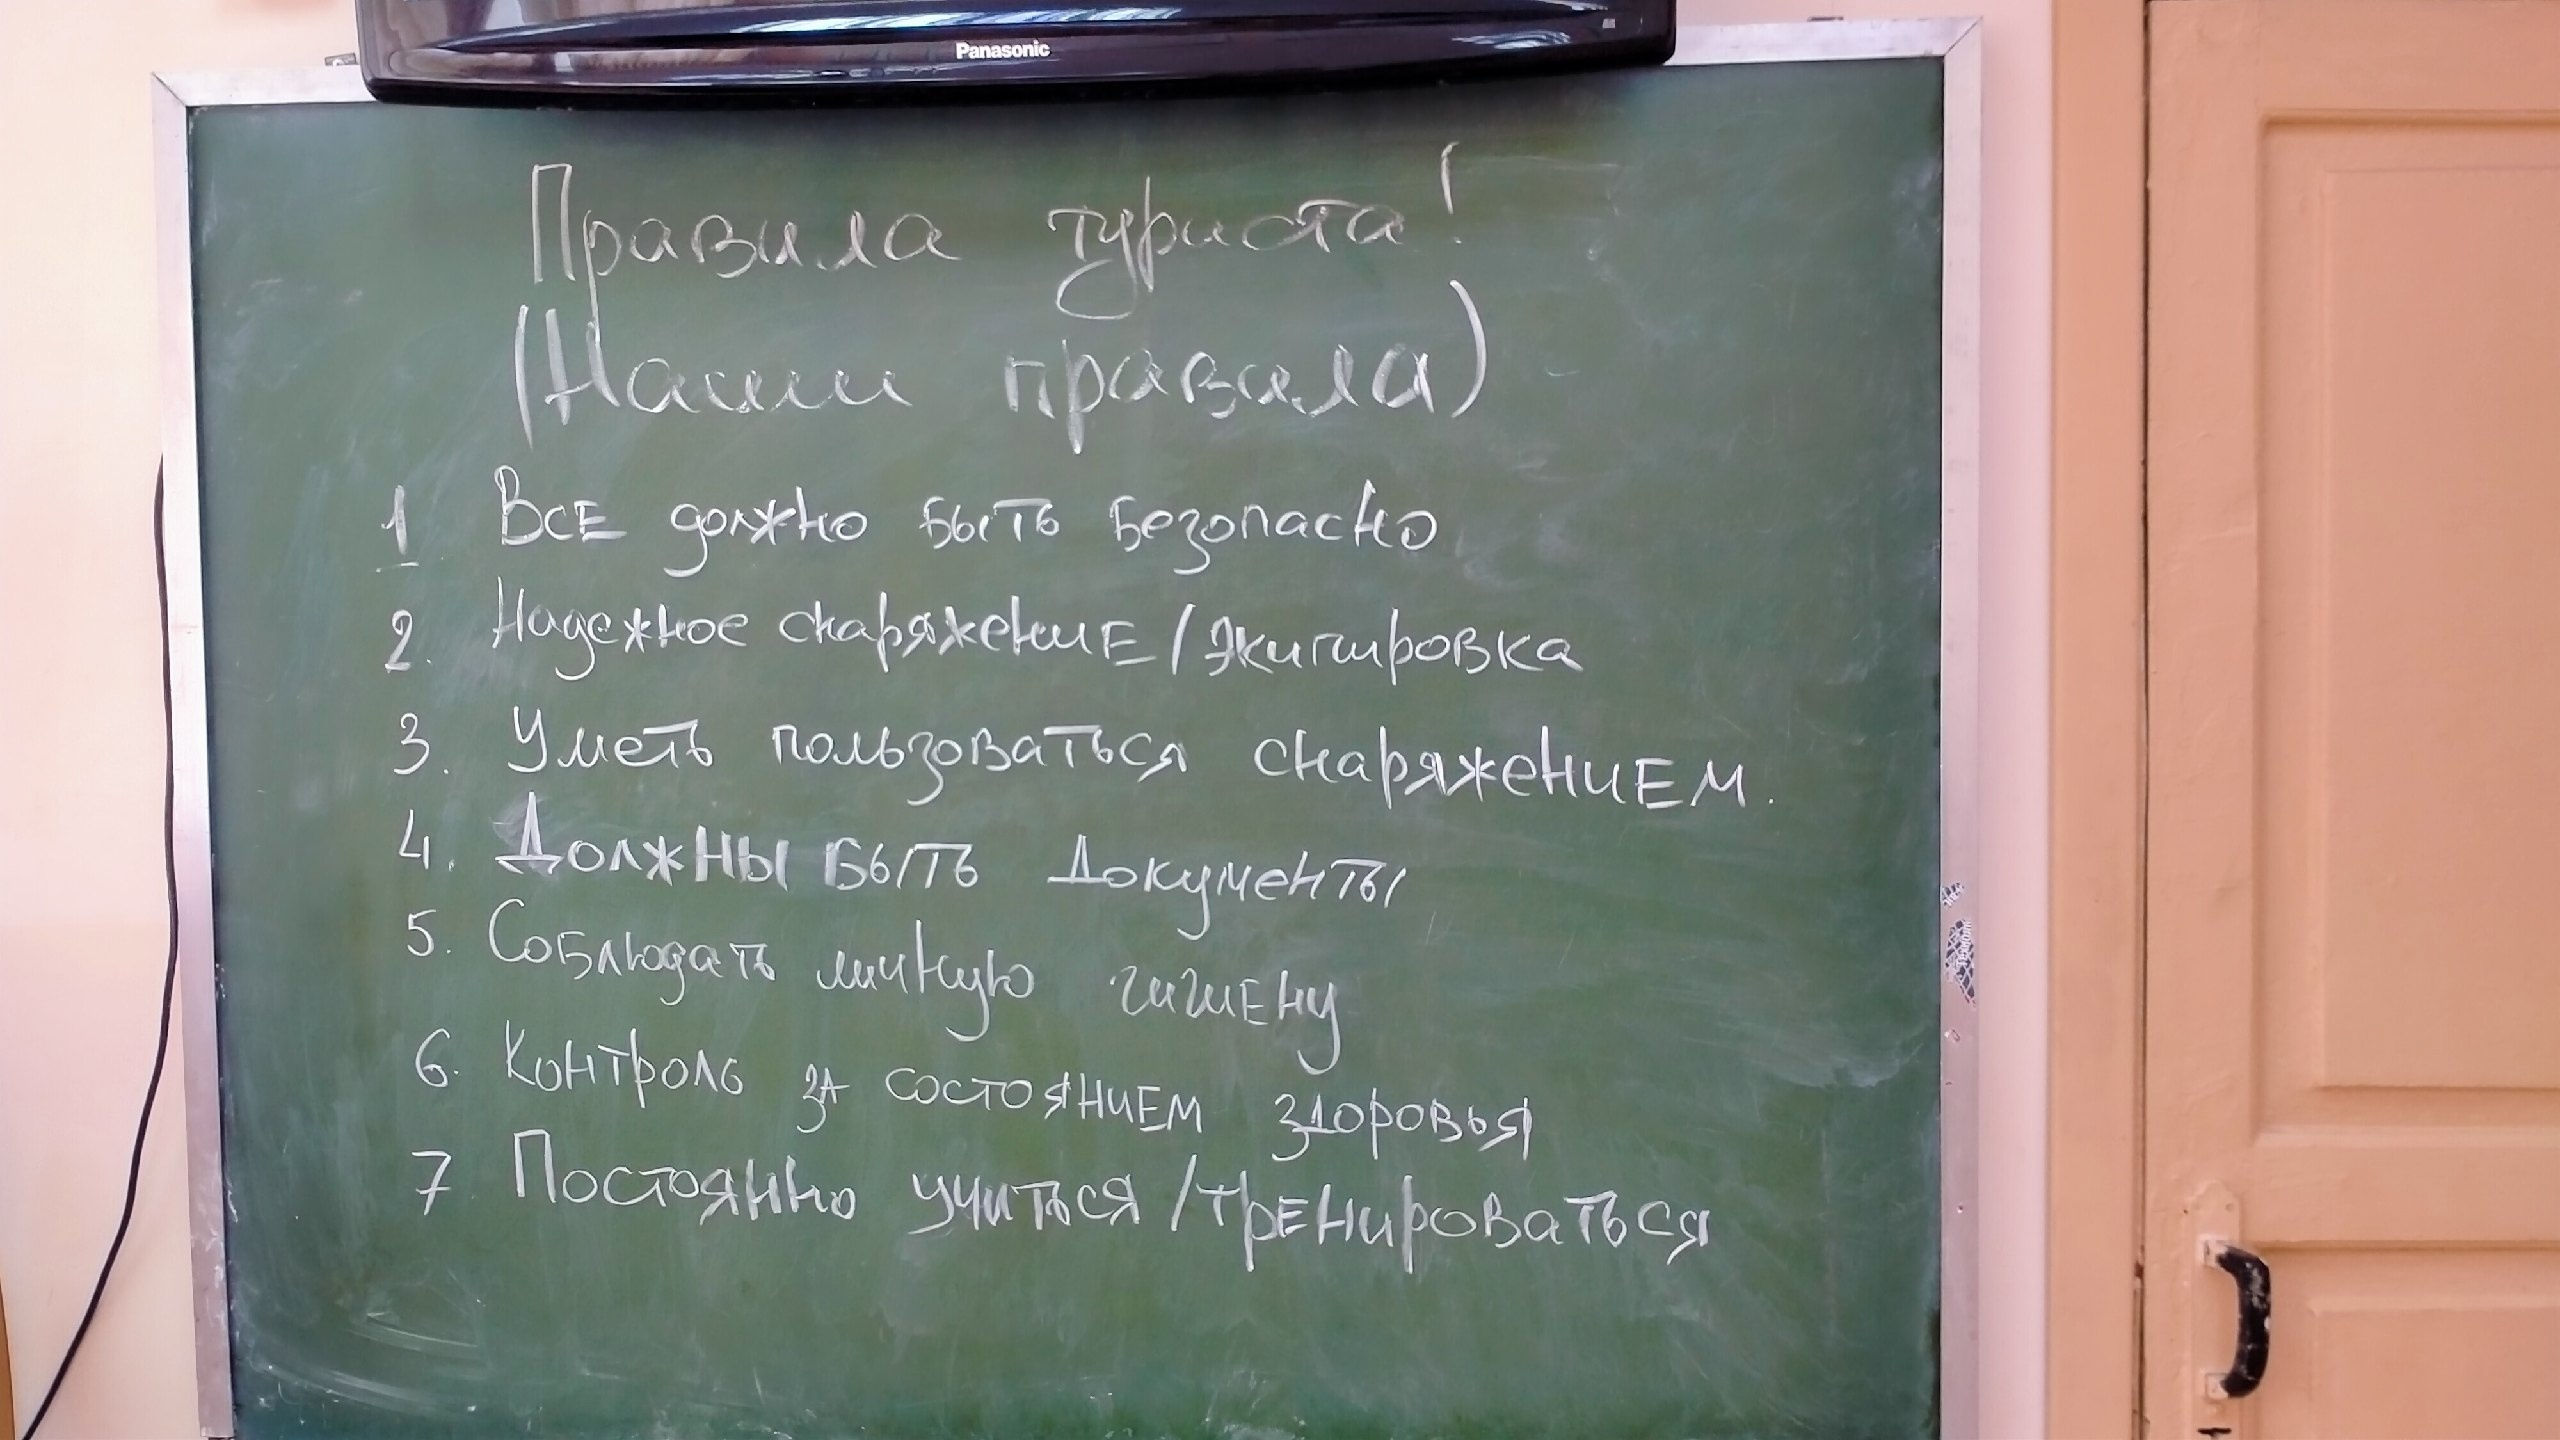 Panasonic
Правила туриста!
(Наши правила)
1 Все должно быть безопасно
2. Надежное снаряжение/Экипировка
3. Уметь пользоваться снаряжением.
4. Должны быть Документы
5. Соблюдать личную гигиену
6. Контроль за состоянием здоровья
7 Постоянно учиться/тренироваться